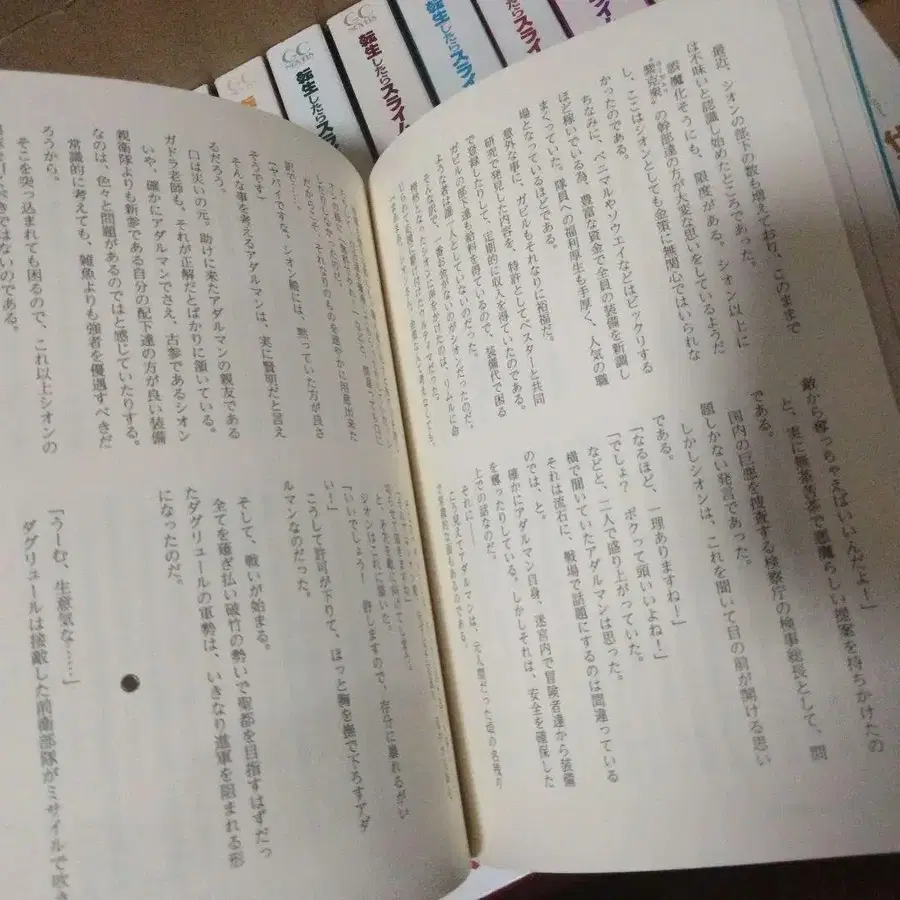 最近、シオンの部下の数も増えており、このままで
は不味いと認識し始めたところであった。
誤魔化そうにも、限度がある。シオン以上に
の幹部達の方が大変な思いをしているようだ
し、ここはシオンとしても金策に無関心ではいられな
かったのである。
ちなみに、ベニマルやソウエイなどはビックリする
ほど稼いでいる為、豊富な資金で全員の装備を新調し
まくっていた。隊員への福利厚生も手厚く、人気の職
場となっているほどである。
意外な事に、ガビルもそれなりに裕福だ。
研究で発見した内容を、特許としてベスターと共同
で登録したりして、定期的に収入を得ていたのである。
ガビルの部下達も給料を得ているので、装備代で困る
ような者は誰一人としていないのだった。
そんな訳で、一番お金がないのがシオンだったのだ。
敵から奪っちゃえばいいんだよ！」
と、実に無茶苦茶で悪魔らしい提案を持ちかけたの
である。
国内の巨悪を捜査する検察庁の検事総長として、問
題しかない発言であった。
しかしシオンは、これを聞いて目の前が開ける思い
である。
「なるほど、一理ありますね！」
「でしょ？　ボクって頭いいよね！」
などと、二人で盛り上がっていた。
横で聞いていたアダルマンは思った。
それは流石に、戦場で話題にするのは間違っている
のでは、と。
確かにアダルマン自身、迷宮内で冒険者達から装備
を奪ったりしている。しかしそれは、安全を確保した
上での話なのだ。
それに――
そんな事を考えるアダルマンは、実に賢明だと言え
るだろう。
口は災いの元。助けに来たアダルマンの親友である
ガドラ老師も、それが正解だとばかりに頷いている。
いや、確かにアダルマンでさえ、古参であるシオン
親衛隊よりも新参である自分の配下達の方が良い装備
なのは、色々と問題があるのではと感じていたりする。
常識的に考えても、雑魚よりも強者を優遇すべきだ
ろうから。
そこを突っ込まれても困るので、これ以上シオンの
べきではないのである。
シオンはこれに頷いた。
「いいでしょう！　許しますので、存分に暴れるがい
い！」
こうして許可が下りて、ほっと胸を撫で下ろすアダ
ルマンなのだった。
そして、戦いが始まる。
全てを薙ぎ払い破竹の勢いで聖都を目指すはずだっ
たダグリュールの軍勢は、いきなり進軍を阻まれる形
になったのだ。
●
「うーむ、生意気な……」
ダグリュールは接敵した前衛部隊がミサイルで吹き
GC NOVELS
転生したらスライム
GC NOVELS
転生したらスライム
GC NOVELS
転生したらスライム
転生したらスライ